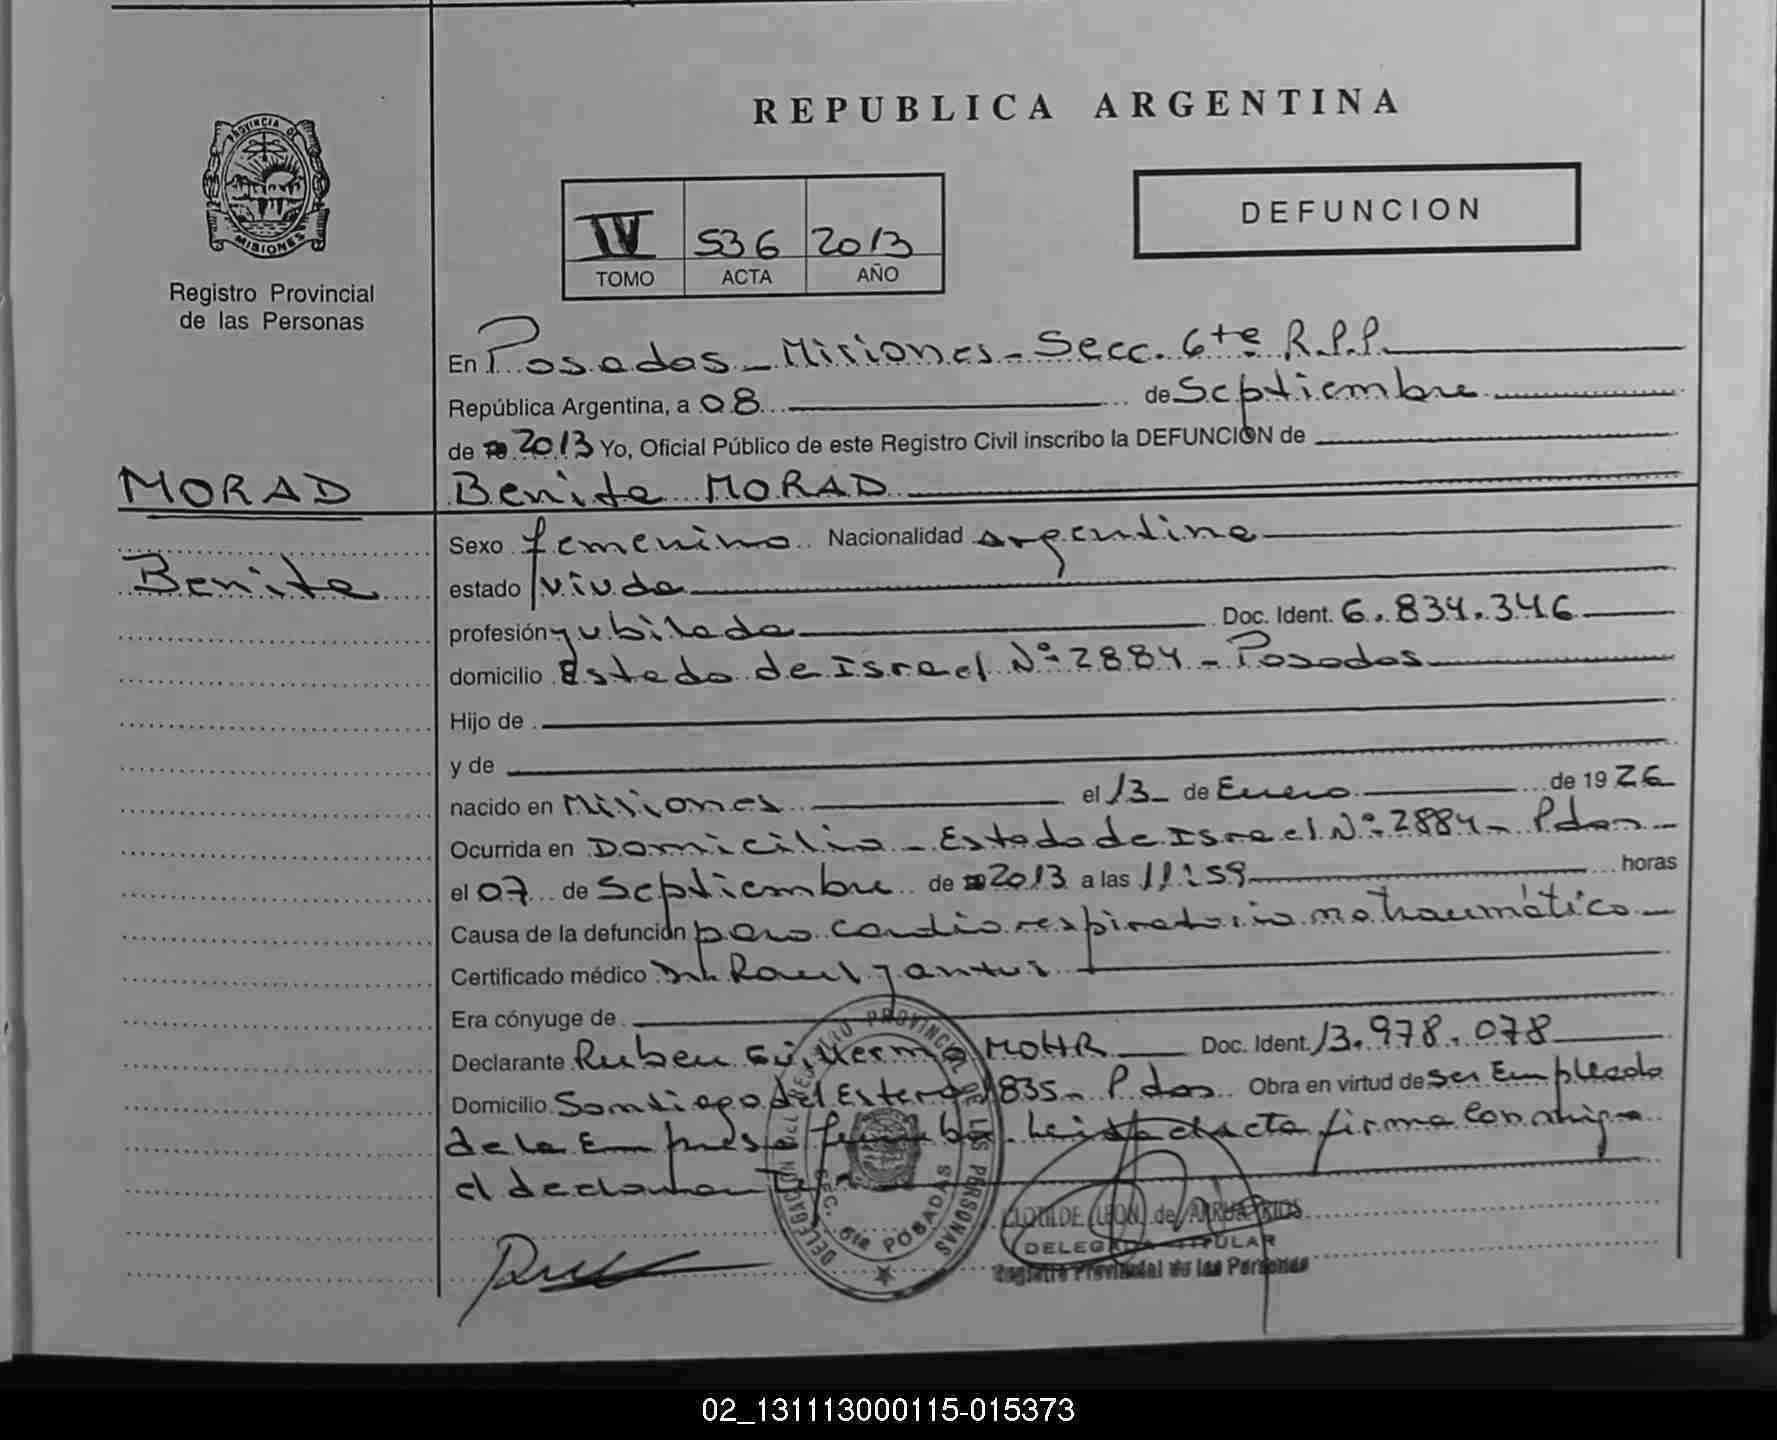 REPUBLICA ARGENTINA
PROVINCIA DE
MISIONES
Registro Provincial
de las Personas
DEFUNCION
IV 536 2013
TOMO ACTA AÑO
En Posadas - Misiones - Secc. 6ta R.P.P.
República Argentina, a 08 de Septiembre
de 2013 Yo, Oficial Público de este Registro Civil inscribo la DEFUNCION de
MORAD
Benita MORAD
Sexo femenino Nacionalidad argentina
Benita
estado viuda
profesión jubilada Doc. Ident. 6.834.346
domicilio Estado de Israel Nº 2884 - Posadas
Hijo de
y de
nacido en Misiones el 13 de Enero de 1926
Ocurrida en Domicilio - Estado de Israel Nº 2884 - Pdas
el 07 de Septiembre de 2013 a las 11:59 horas
Causa de la defunción paro cardio respiratorio no traumático
Certificado médico Dr. Raul
Era cónyuge de
Declarante Ruben Guillermo MOHR Doc. Ident. 13.978.078
Domicilio Santiago del Estero 1835 - Pdas Obra en virtud de ser Empleado
de la Empresa funebre. Leida el acta firma conmigo
el declarante
DELEGACION DEL REGISTRO PROVINCIAL DE LAS PERSONAS
SEC. 6ta POSADAS
CLOTILDE LEON de ARRUA RIOS
DELEGADA TITULAR
Registro Provincial de las Personas
02_131113000115-015373